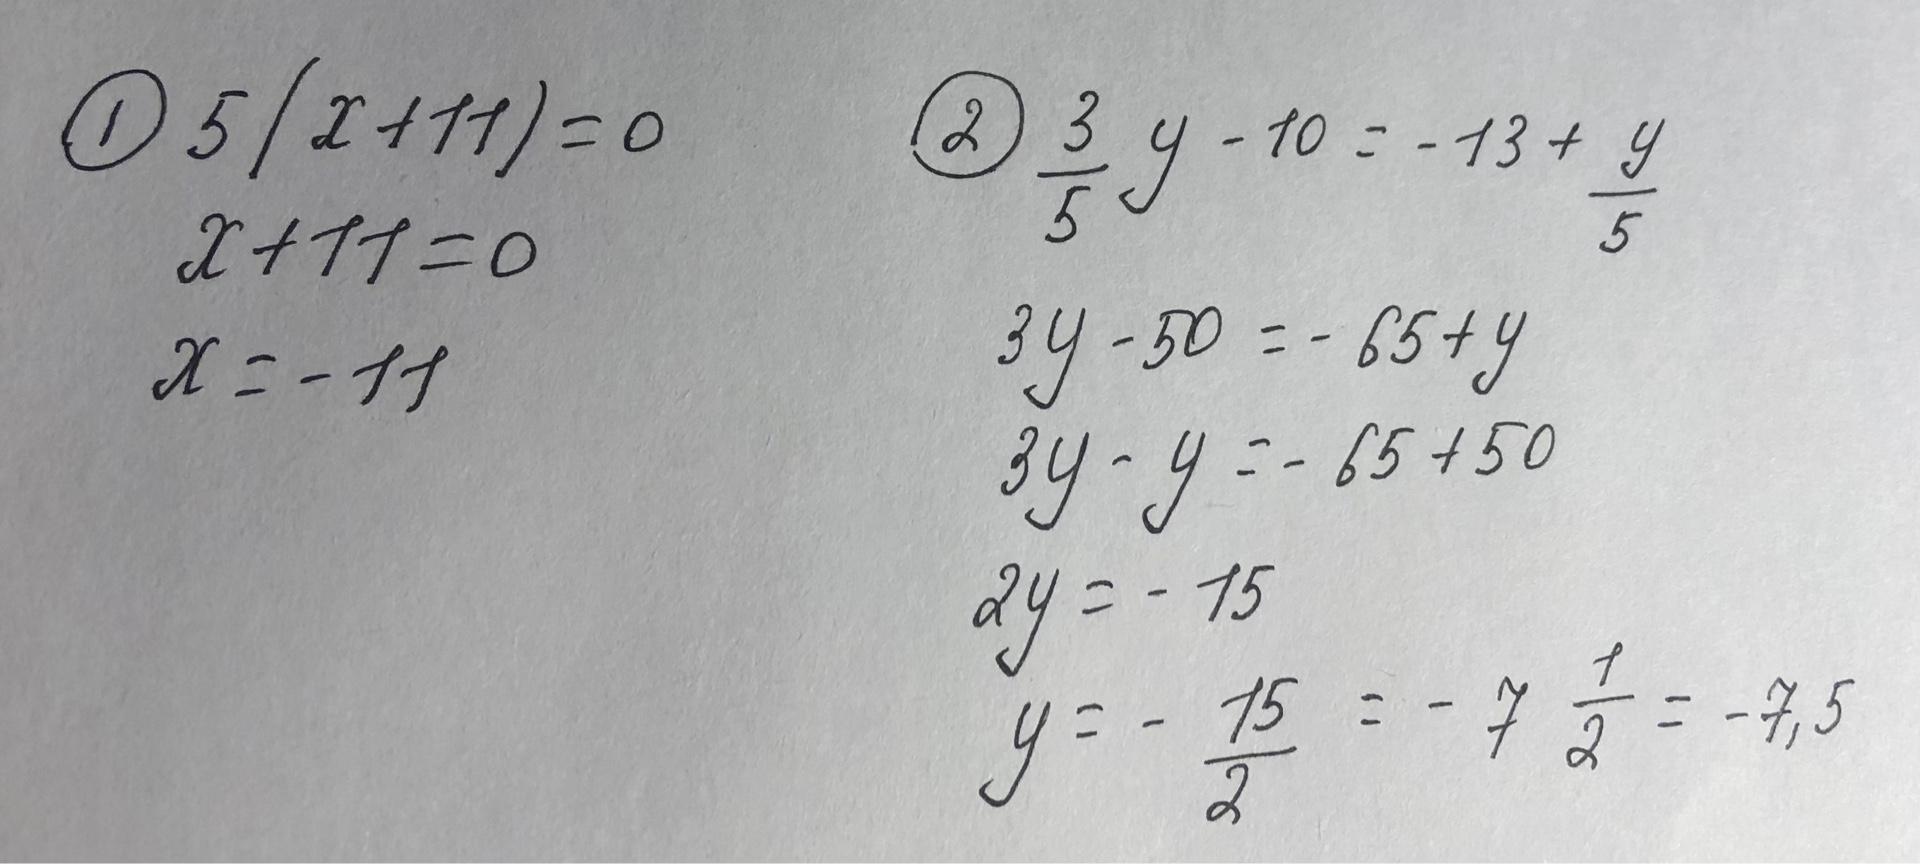 ① 5(x+11)=0
x+11=0
x=-11
② 3/5 y - 10 = -13 + y/5
3y - 50 = - 65 + y
3y - y = - 65 + 50
2y = - 15
y = - 15/2 = - 7 1/2 = -7,5